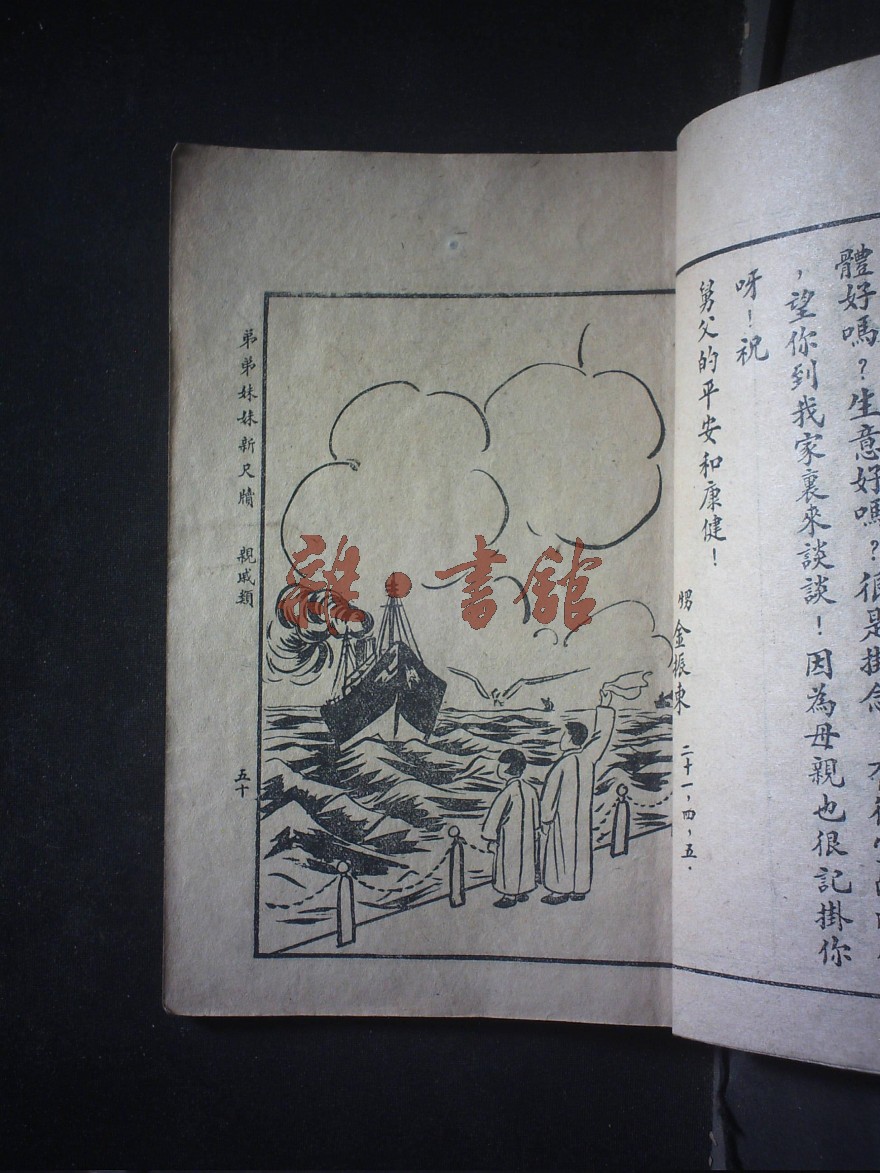 體好嗎?生意好嗎?很是掛念
,望你到我家裏來談談!因為母親也很記掛你
呀!祝
舅父的平安和康健!
甥 金振東 二十一,四,五.
弟弟妹妹新尺牘 親戚類 五十
雜·書館